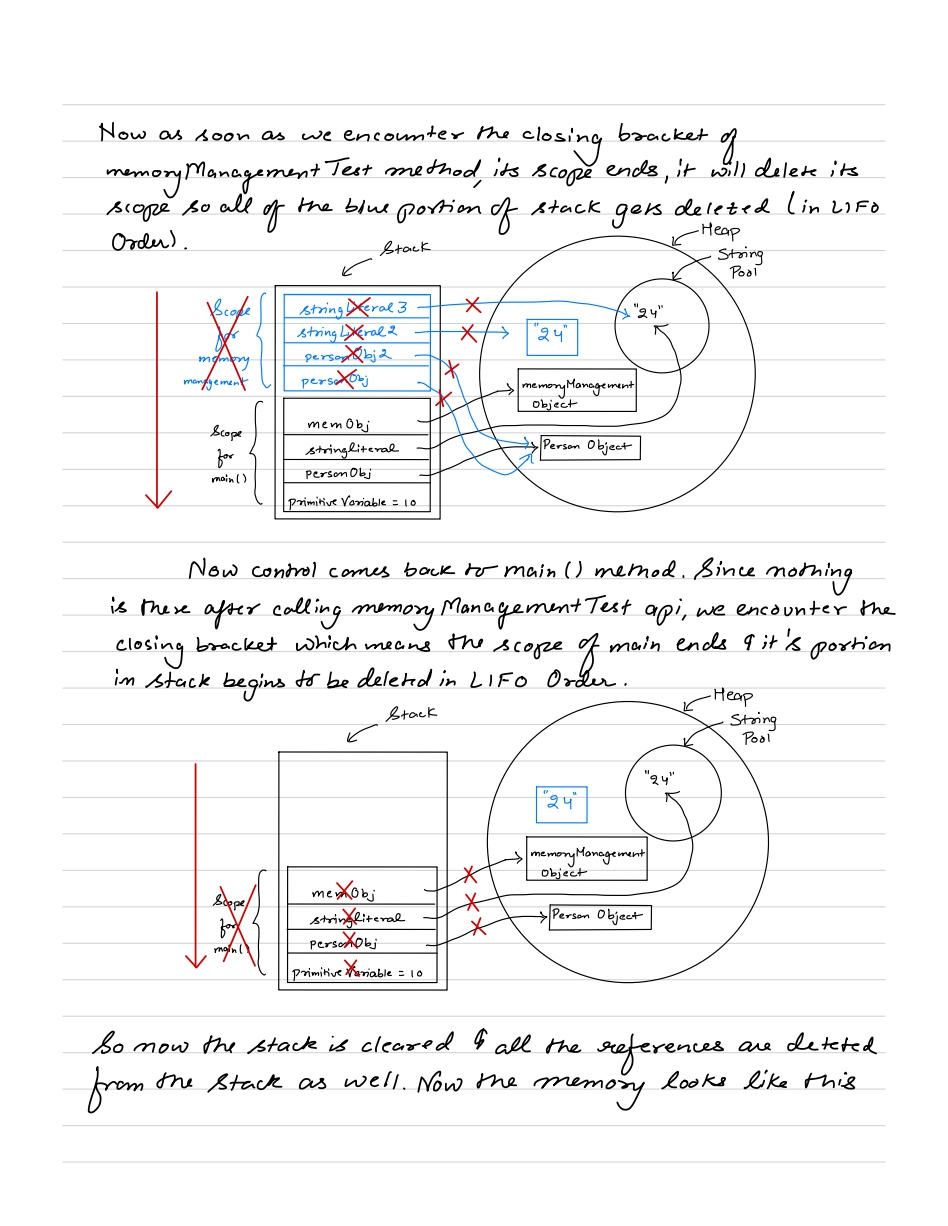 Now as soon as we encounter the closing bracket of
memoryManagementTest method, its scope ends, it will delete its
scope so all of the blue portion of stack gets deleted (in LIFO
Order).
Heap
String
Pool
Stack
Scope
for
memory
management
stringLiteral 3
stringLiteral 2
personObj 2
personObj
"24"
"24"
memoryManagement
Object
Person Object
Scope
for
main()
memObj
stringliteral
personObj
primitive Variable = 10
Now control comes back to main () method. Since nothing
is there after calling memoryManagementTest api, we encounter the
closing bracket which means the scope of main ends & it's portion
in stack begins to be deleted in LIFO Order.
Heap
String
Pool
Stack
"24"
"24"
memoryManagement
Object
Person Object
Scope
for
main()
memObj
stringliteral
personObj
primitive Variable = 10
So now the stack is cleared & all the references are deteted
from the stack as well. Now the memory looks like this